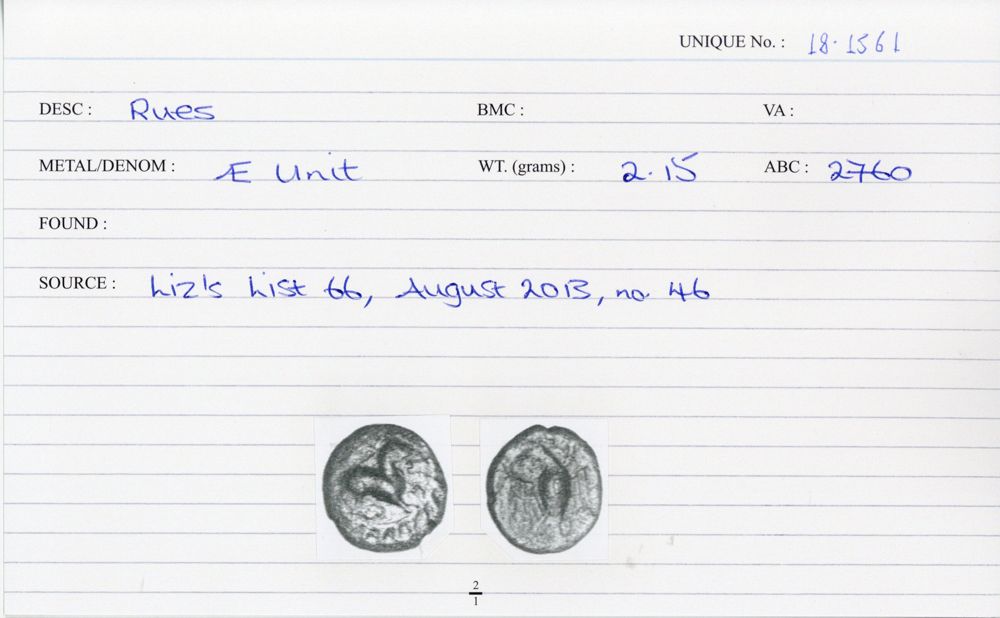 UNIQUE No. : 18.1561
DESC : Rues BMC : VA :
METAL/DENOM : Æ Unit WT. (grams) : 2.15 ABC : 2760
FOUND :
SOURCE : Liz's List 66, August 2013, no. 46
2
1